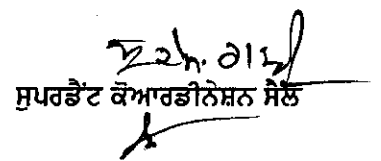 ਸੁਪਰਡੈਂਟ ਕੋਆਰਡੀਨੇਸ਼ਨ ਸੈੱਲ